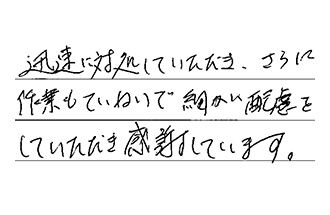 迅速に対処していただき、さらに
作業もていねいで細かい配慮を
していただき感謝しています。